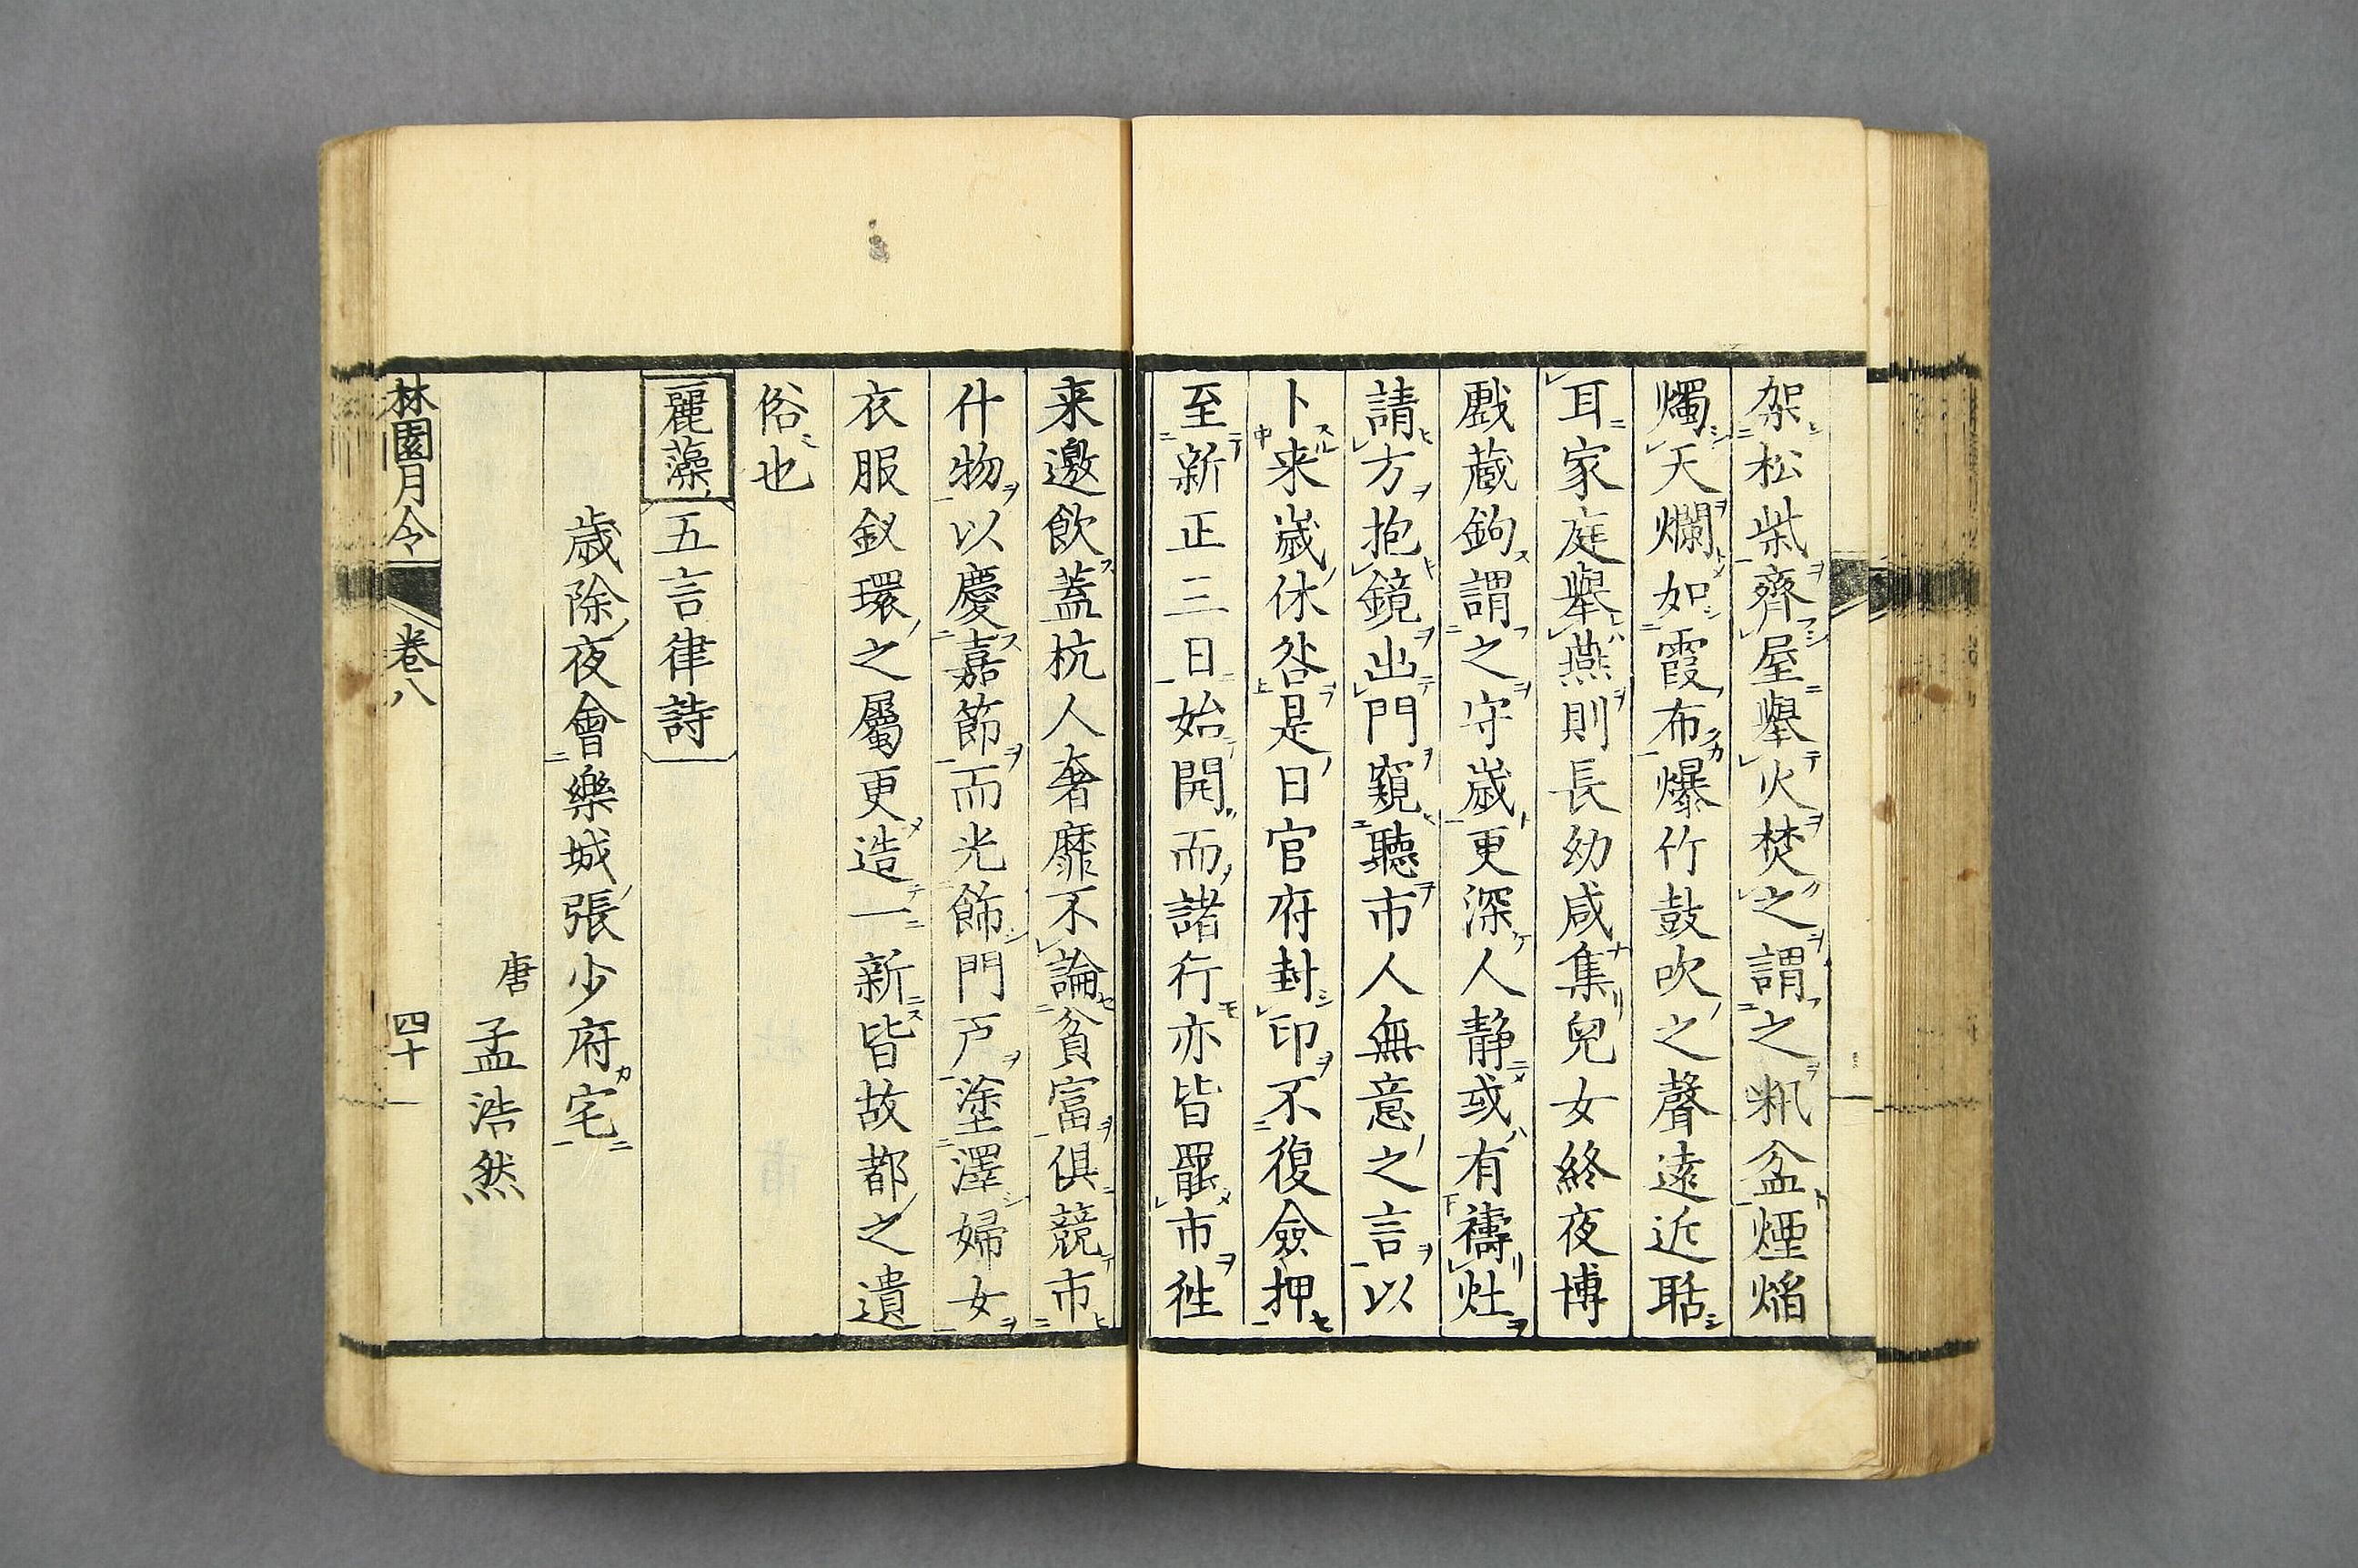 架松柴齊屋舉火焚之謂之籸盆煙焰
燭天爛如霞布爆竹鼓吹之聲遠近聒
耳家庭舉燕則長幼咸集兒女終夜博
戲藏鉤謂之守歲更深人静或有禱灶
請方抱鏡出門窺聽市人無意之言以
卜来歲休咎是日官府封印不復僉押
至新正三日始開而諸行亦皆罷市徃
来邀飲蓋杭人奢靡不論貧富俱競市
什物以慶嘉節而光飾門戸塗澤婦女
衣服釵環之屬更造一新皆故都之遺
俗也
麗藻 五言律詩
歳除夜會樂城張少府宅
唐 孟浩然
林園月令 卷八 四十